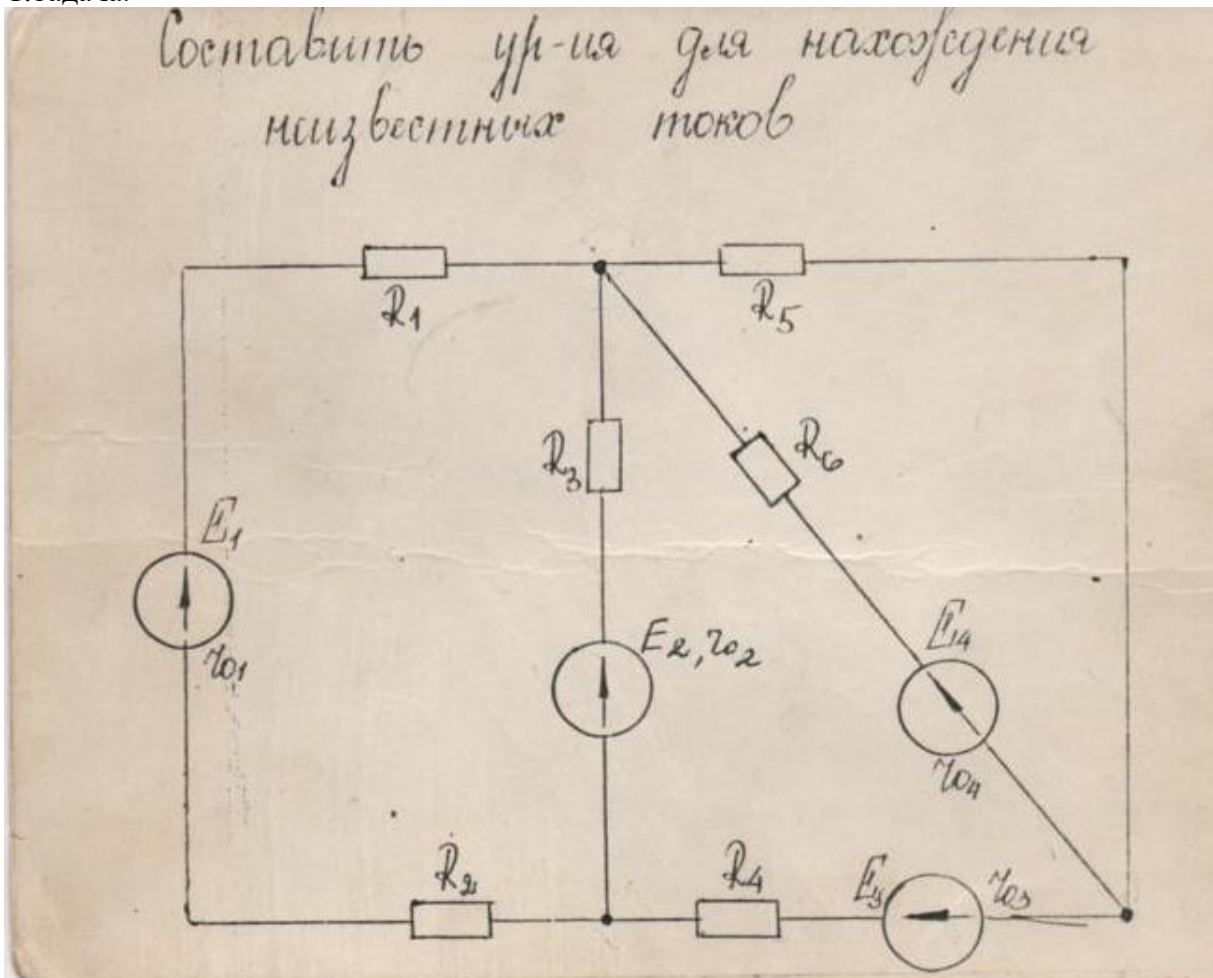 Составить ур-ия для нахождения
неизвестных токов
R1
R5
R3
R6
E1
r01
E2, r02
E4
r04
R2
R4
E3
r03